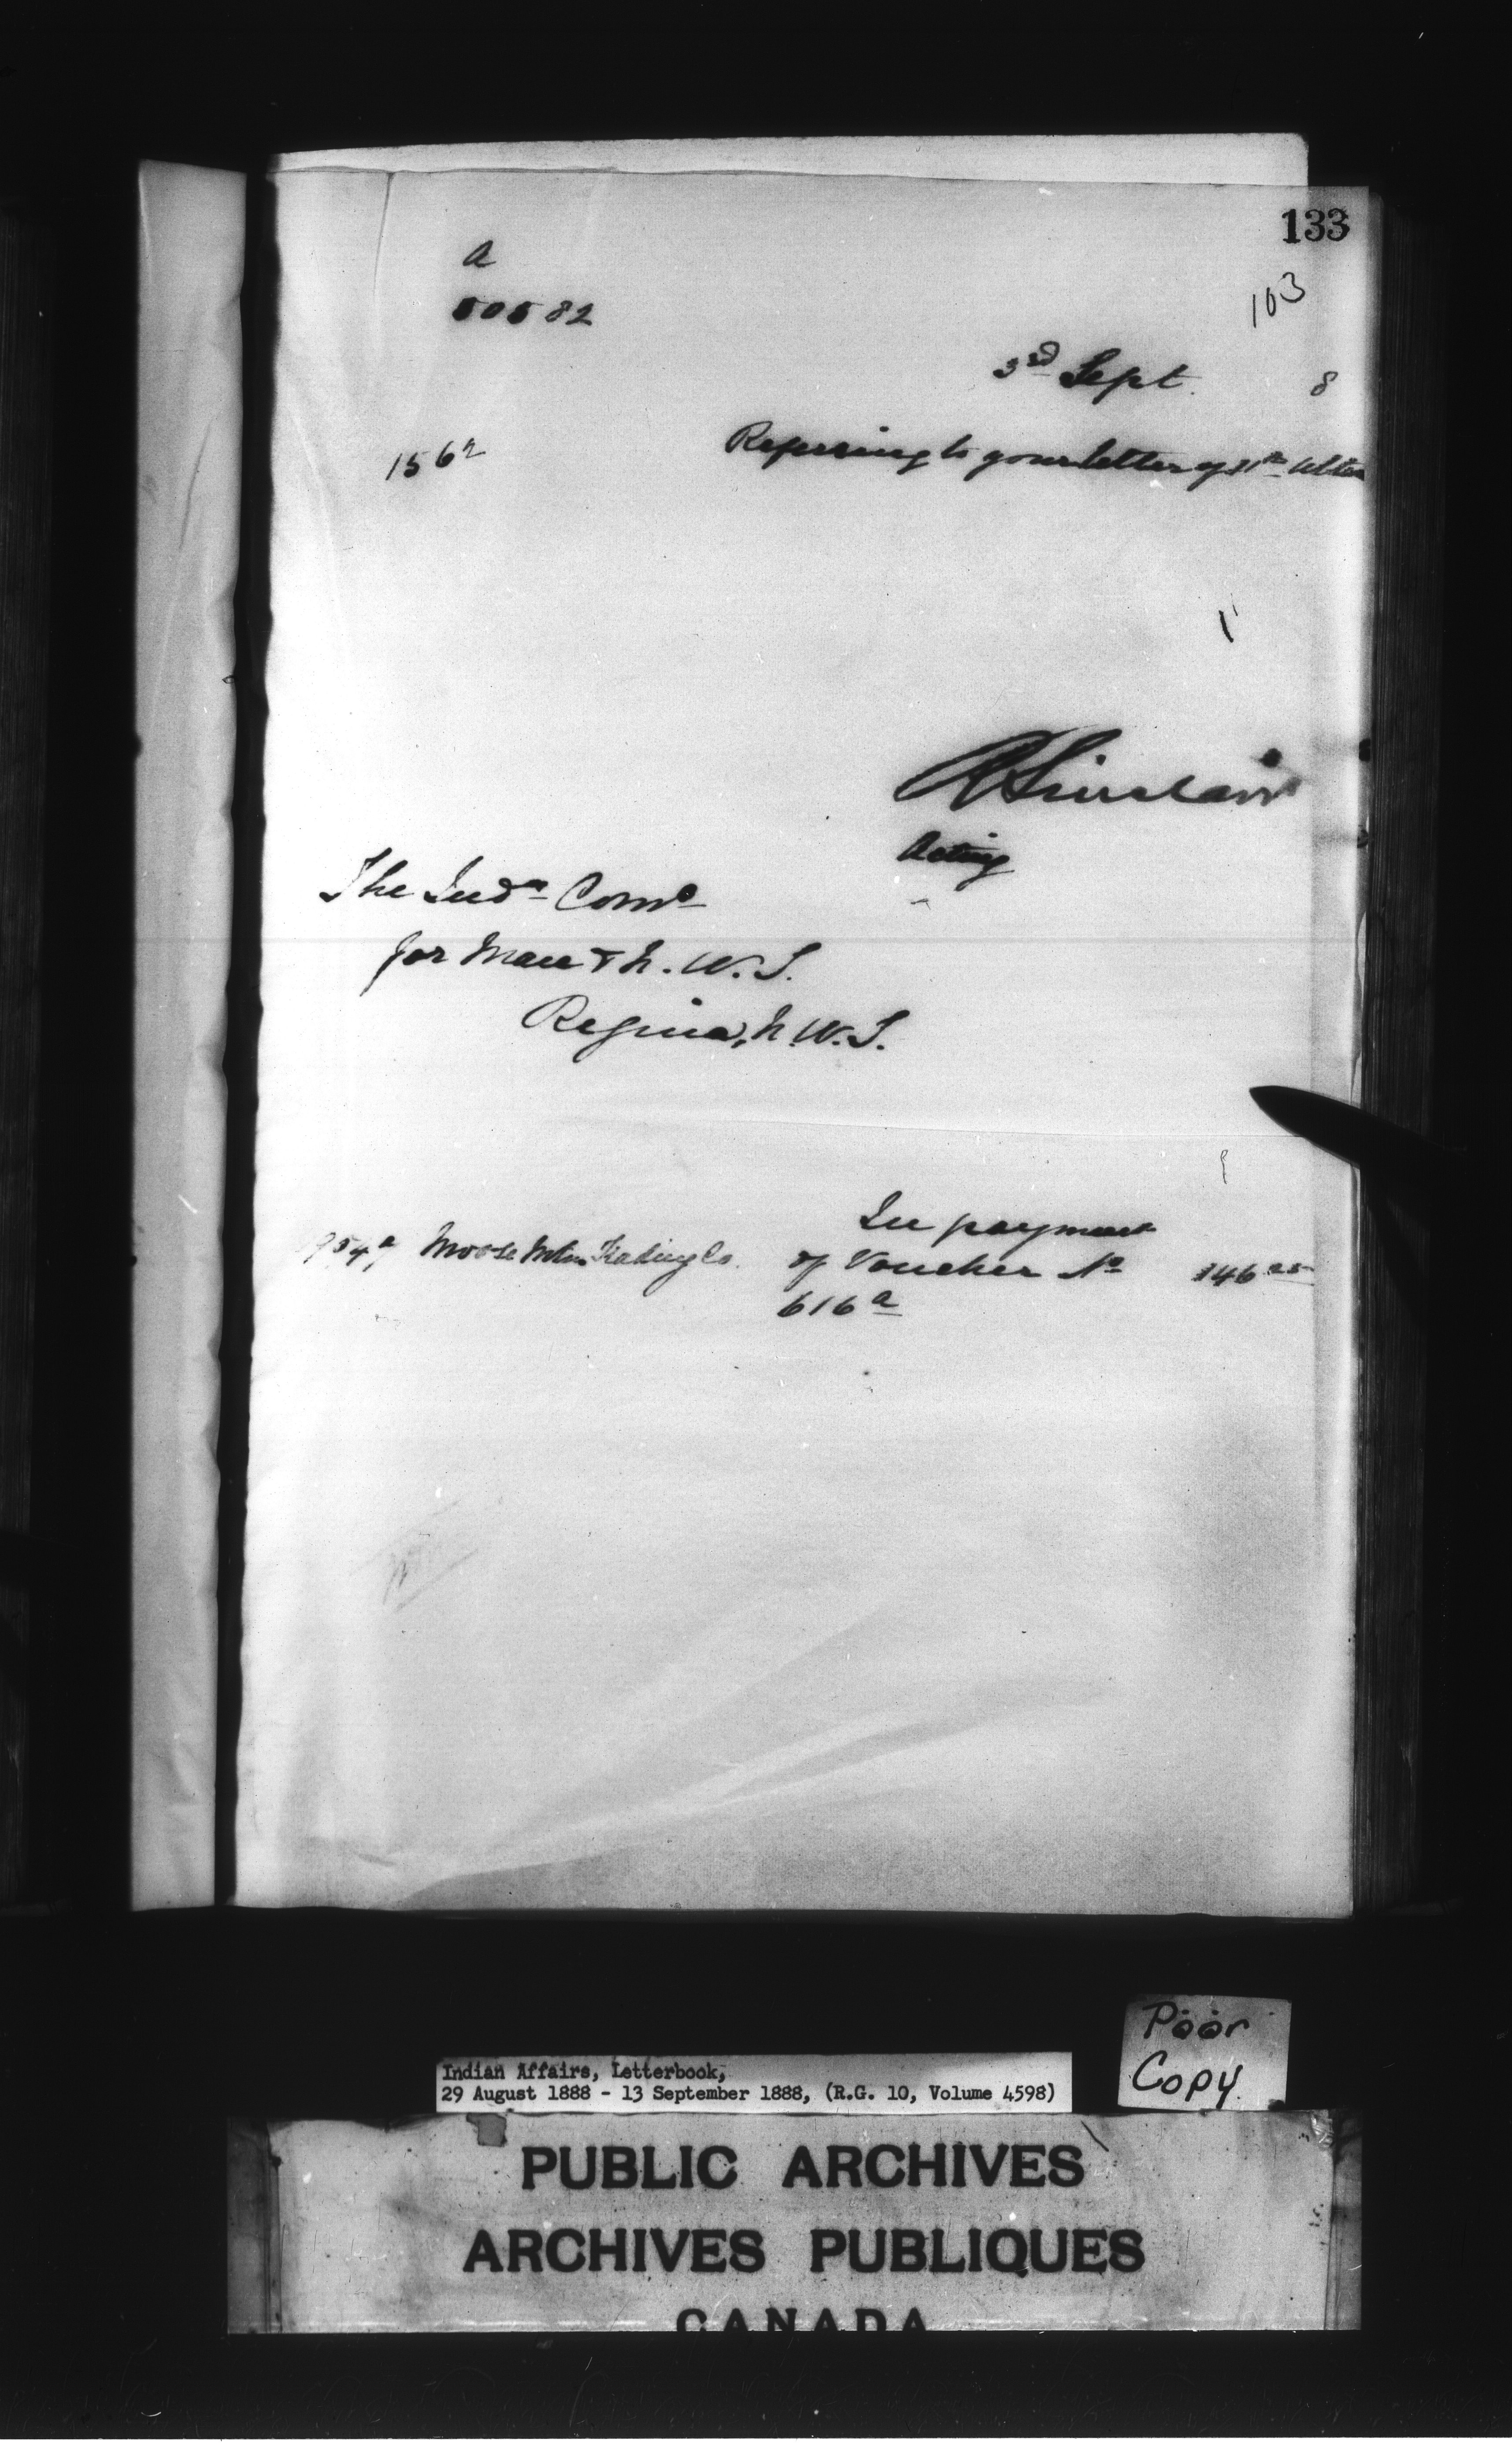 133
a
50582
103
3rd Sept. 8
156a
Referring to your letter of 11th Ulto
A Sinclair
Acting
The Indn Comr
for Man & N. W. T.
Regina, N. W. T.
In payment
954a Moose Mtn Trading Co. of Voucher No 146 25
616a
Poor
Copy
Indian Affairs, Letterbook,
29 August 1888 - 13 September 1888, (R.G. 10, Volume 4598)
PUBLIC ARCHIVES
ARCHIVES PUBLIQUES
CANADA